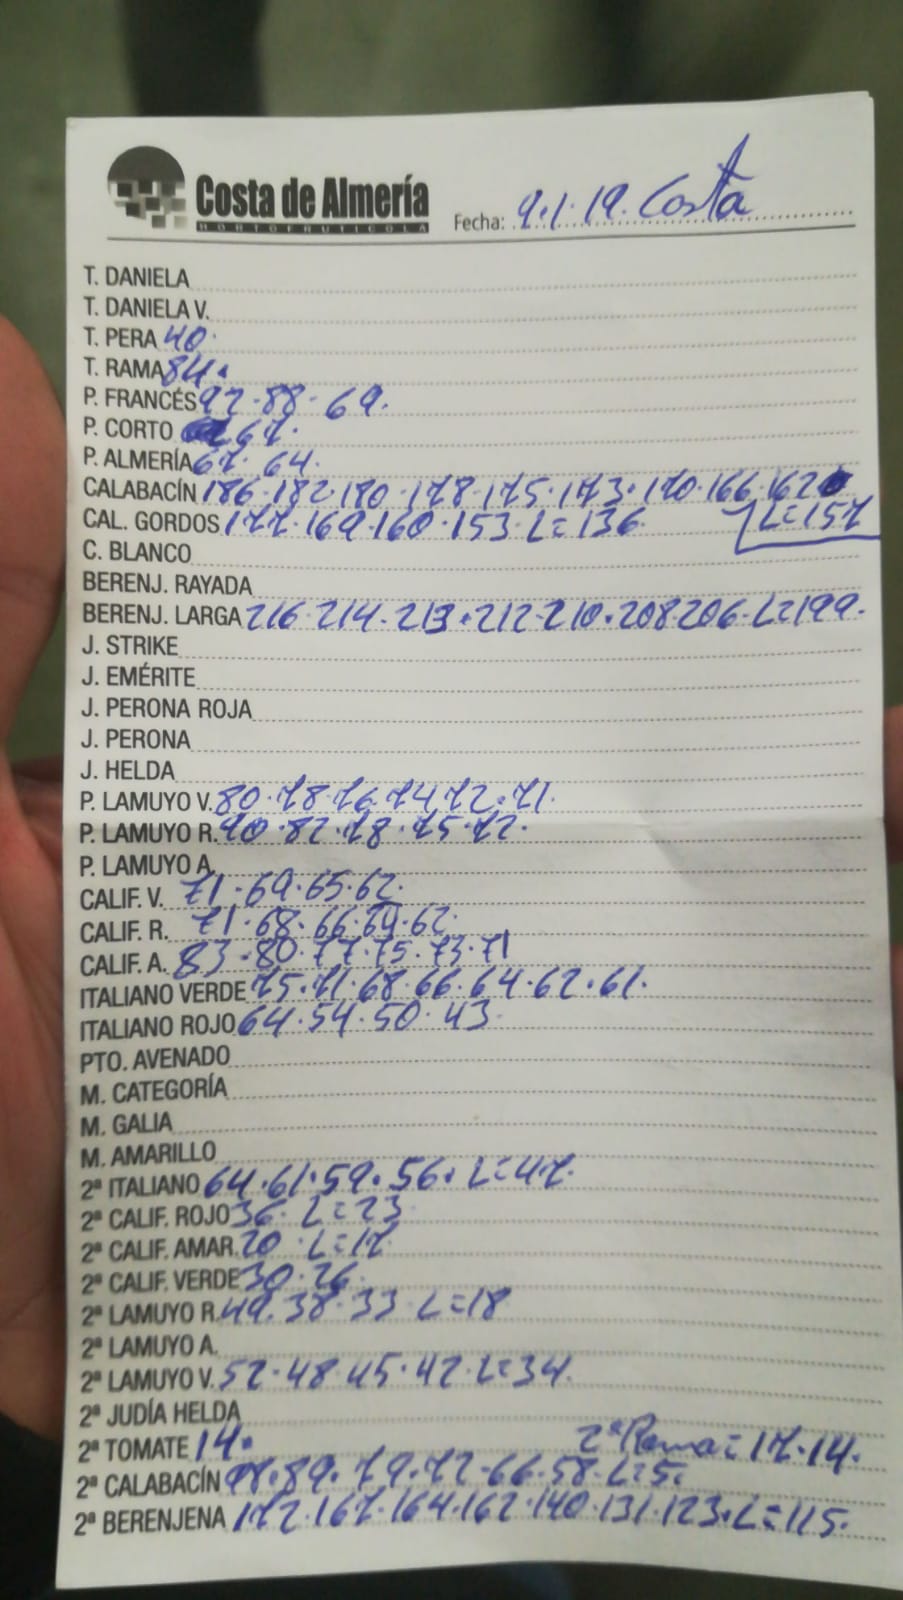 Costa de Almería
HORTOFRUTICOLA
Fecha: 9.1.19. Costa
T. DANIELA
T. DANIELA V.
T. PERA 40.
T. RAMA 84.
P. FRANCÉS 92.88.69.
P. CORTO 67.
P. ALMERÍA 67.64.
CALABACÍN 186.182.180.178.175.173.170.166.162
L=157
CAL. GORDOS 177.169.160.153.L=136.
C. BLANCO
BERENJ. RAYADA
BERENJ. LARGA 216.214.213.212.210.208.206.L=199.
J. STRIKE
J. EMÉRITE
J. PERONA ROJA
J. PERONA
J. HELDA
P. LAMUYO V. 80.78.76.74.72.71.
P. LAMUYO R. 90.82.78.75.72.
P. LAMUYO A.
CALIF. V. 71.69.65.62.
CALIF. R. 71.68.66.64.62.
CALIF. A. 83.80.77.75.73.71
ITALIANO VERDE 75.71.68.66.64.62.61.
ITALIANO ROJO 64.54.50.43
PTO. AVENADO
M. CATEGORÍA
M. GALIA
M. AMARILLO
2ª ITALIANO 64.61.59.56.L=47.
2ª CALIF. ROJO 36.L=23
2ª CALIF. AMAR. 20.L=17
2ª CALIF. VERDE 30.26.
2ª LAMUYO R. 49.38.33.L=18
2ª LAMUYO A.
2ª LAMUYO V. 52.48.45.42.L=34.
2ª JUDÍA HELDA
2ª TOMATE 14. 2ª Rama=17.14.
2ª CALABACÍN 89.79.72.66.58.
2ª BERENJENA 172.167.164.162.140.131.123.L=115.